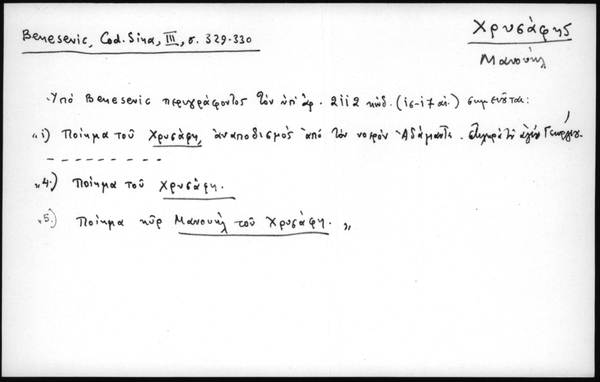 Benesevic, Cod. Sina, III, σ. 329-330
Χρυσάφης
Μανουήλ
Ὑπό Benesevic περιγράφοντος τόν ὑπ' ἀρ. 2112 κώδ. (ις-ι7 αἰ.) σημειοῦται:
"1) Ποίημα τοῦ Χρυσάφη, ἀναποδισμός ἀπό τόν νοερόν Ἀδάμαντα. στιχηρά τοῦ ἁγίου Γεωργίου.
- - - - - - - - -
"4.) Ποίημα τοῦ Χρυσάφη.
"5.) Ποίημα κῦρ Μανουήλ τοῦ Χρυσάφη. "